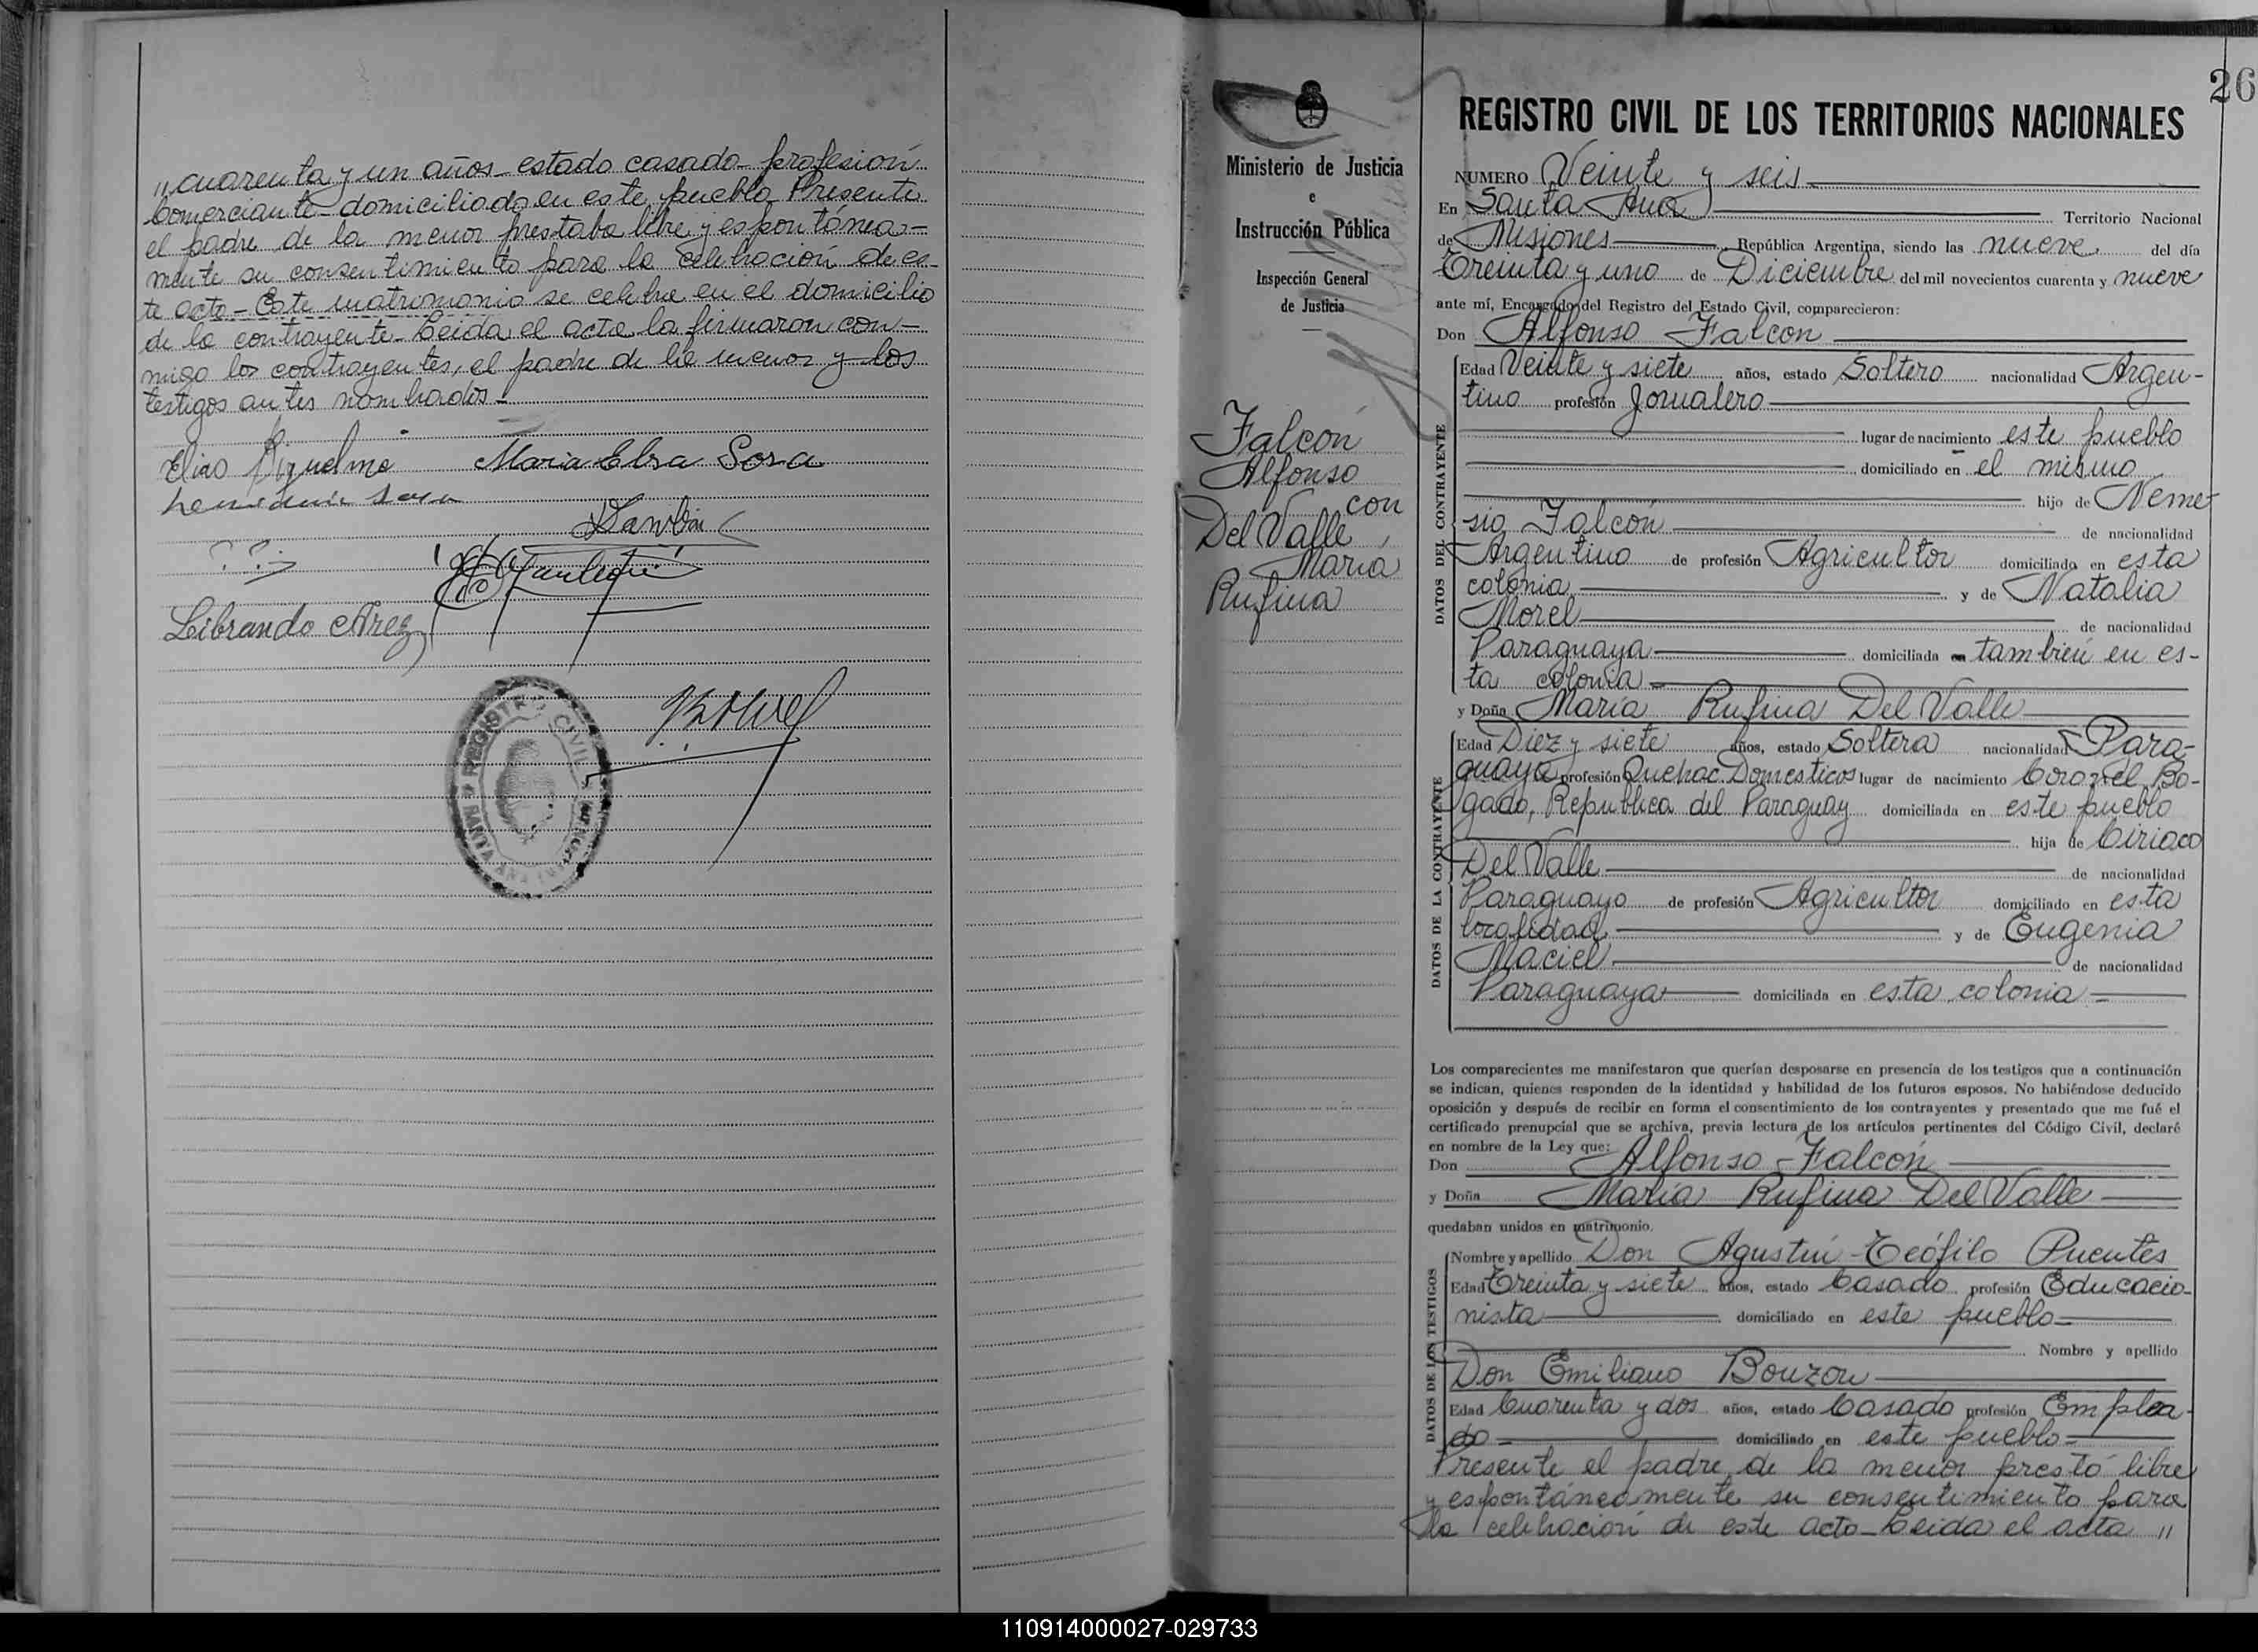 „ cuarenta y un años - estado casado - profesión
Comerciante - domiciliado en este pueblo. Presente
el padre de la menor prestaba libre y espontánea-
mente su consentimiento para la celebración de es-
te acto - Este matrimonio se celebra en el domicilio
de la contrayente - Leida el acta la firmaron con-
migo los contrayentes, el padre de la menor y los
testigos antes nombrados -
Elias Riquelme Maria Elsa Sosa
Librando Arez
REGISTRO CIVIL
SANTA ANA
Ministerio de Justicia
e
Instrucción Pública
Inspección General
de Justicia
Falcón
Alfonso
con
Del Valle,
María
Rufina
26
REGISTRO CIVIL DE LOS TERRITORIOS NACIONALES
NUMERO Veinte y seis
En Santa Ana Territorio Nacional
de Misiones República Argentina, siendo las nueve del día
Treinta y uno de Diciembre del mil novecientos cuarenta y nueve
ante mí, Encargado del Registro del Estado Civil, comparecieron:
Don Alfonso Falcon
DATOS DEL CONTRAYENTE
Edad Veinte y siete años, estado Soltero nacionalidad Argen-
tino profesión Jornalero
lugar de nacimiento este pueblo
domiciliado en el mismo
hijo de Neme-
sio Falcón de nacionalidad
Argentino de profesión Agricultor domiciliado en esta
colonia y de Natalia
Morel de nacionalidad
Paraguaya domiciliada en también en es-
ta colonia -
y Doña María Rufina Del Valle
DATOS DE LA CONTRAYENTE
Edad Diez y siete años, estado Soltera nacionalidad Para-
guaya profesión Quehac. Domesticos lugar de nacimiento Coronel Bo-
gado, Republica del Paraguay domiciliada en este pueblo
hija de Ciriaco
Del Valle de nacionalidad
Paraguayo de profesión Agricultor domiciliado en esta
localidad y de Eugenia
Maciel de nacionalidad
Paraguaya domiciliada en esta colonia -
Los comparecientes me manifestaron que querían desposarse en presencia de los testigos que a continuación
se indican, quienes responden de la identidad y habilidad de los futuros esposos. No habiéndose deducido
oposición y después de recibir en forma el consentimiento de los contrayentes y presentado que me fué el
certificado prenupcial que se archiva, previa lectura de los artículos pertinentes del Código Civil, declaré
en nombre de la Ley que:
Don Alfonso - Falcón
y Doña María Rufina Del Valle
quedaban unidos en matrimonio.
DATOS DE LOS TESTIGOS
Nombre y apellido Don Agustín - Teófilo Puentes
Edad Treinta y siete años, estado Casado profesión Educacio-
nista domiciliado en este pueblo -
Nombre y apellido
Don Emiliano Bouzon
Edad Cuarenta y dos años, estado Casado profesión Emplea-
do - domiciliado en este pueblo -
Presente el padre de la menor prestó libre
y espontáneamente su consentimiento para
la celebración de este acto - Leida el acta „
110914000027-029733